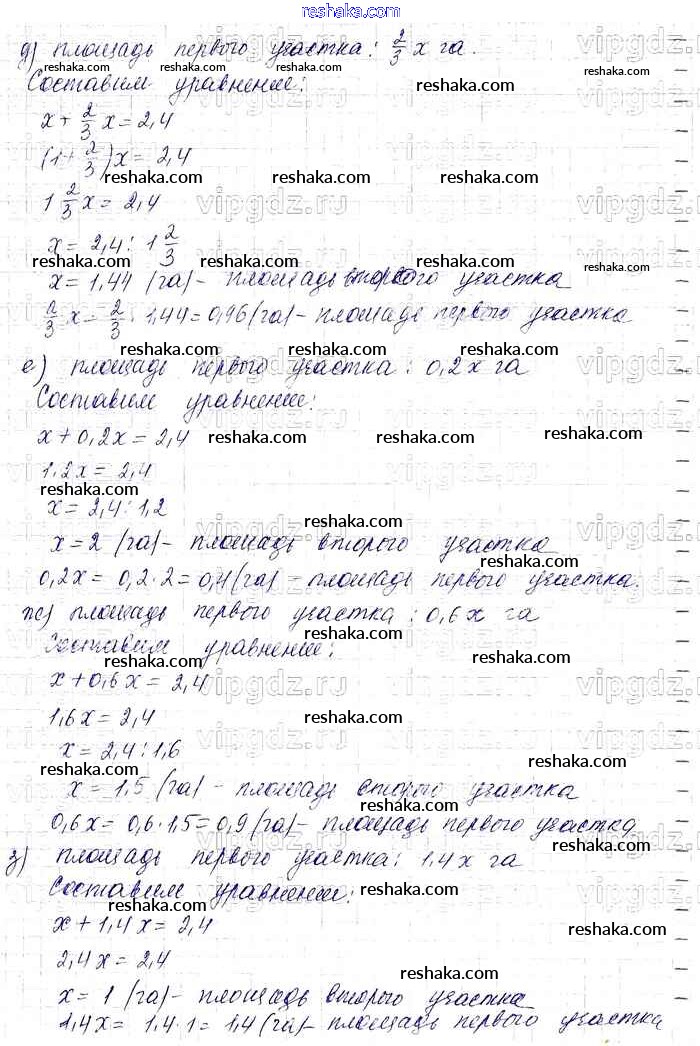 reshaka.com
д) площадь первого участка: 2/3 x га.
Составим уравнение:
x + 2/3 x = 2,4
(1 + 2/3)x = 2,4
1 2/3 x = 2,4
x = 2,4 : 1 2/3
x = 1,44 (га) – площадь второго участка
2/3 x = 2/3 · 1,44 = 0,96 (га) – площадь первого участка
е) площадь первого участка: 0,2x га
Составим уравнение:
x + 0,2x = 2,4
1,2x = 2,4
x = 2,4 : 1,2
x = 2 (га) – площадь второго участка
0,2x = 0,2 · 2 = 0,4 (га) – площадь первого участка.
ж) площадь первого участка: 0,6x га
Составим уравнение:
x + 0,6x = 2,4
1,6x = 2,4
x = 2,4 : 1,6
x = 1,5 (га) – площадь второго участка
0,6x = 0,6 · 1,5 = 0,9 (га) – площадь первого участка
з) площадь первого участка: 1,4x га
Составим уравнение:
x + 1,4x = 2,4
2,4x = 2,4
x = 1 (га) – площадь второго участка
1,4x = 1,4 · 1 = 1,4 (га) – площадь первого участка